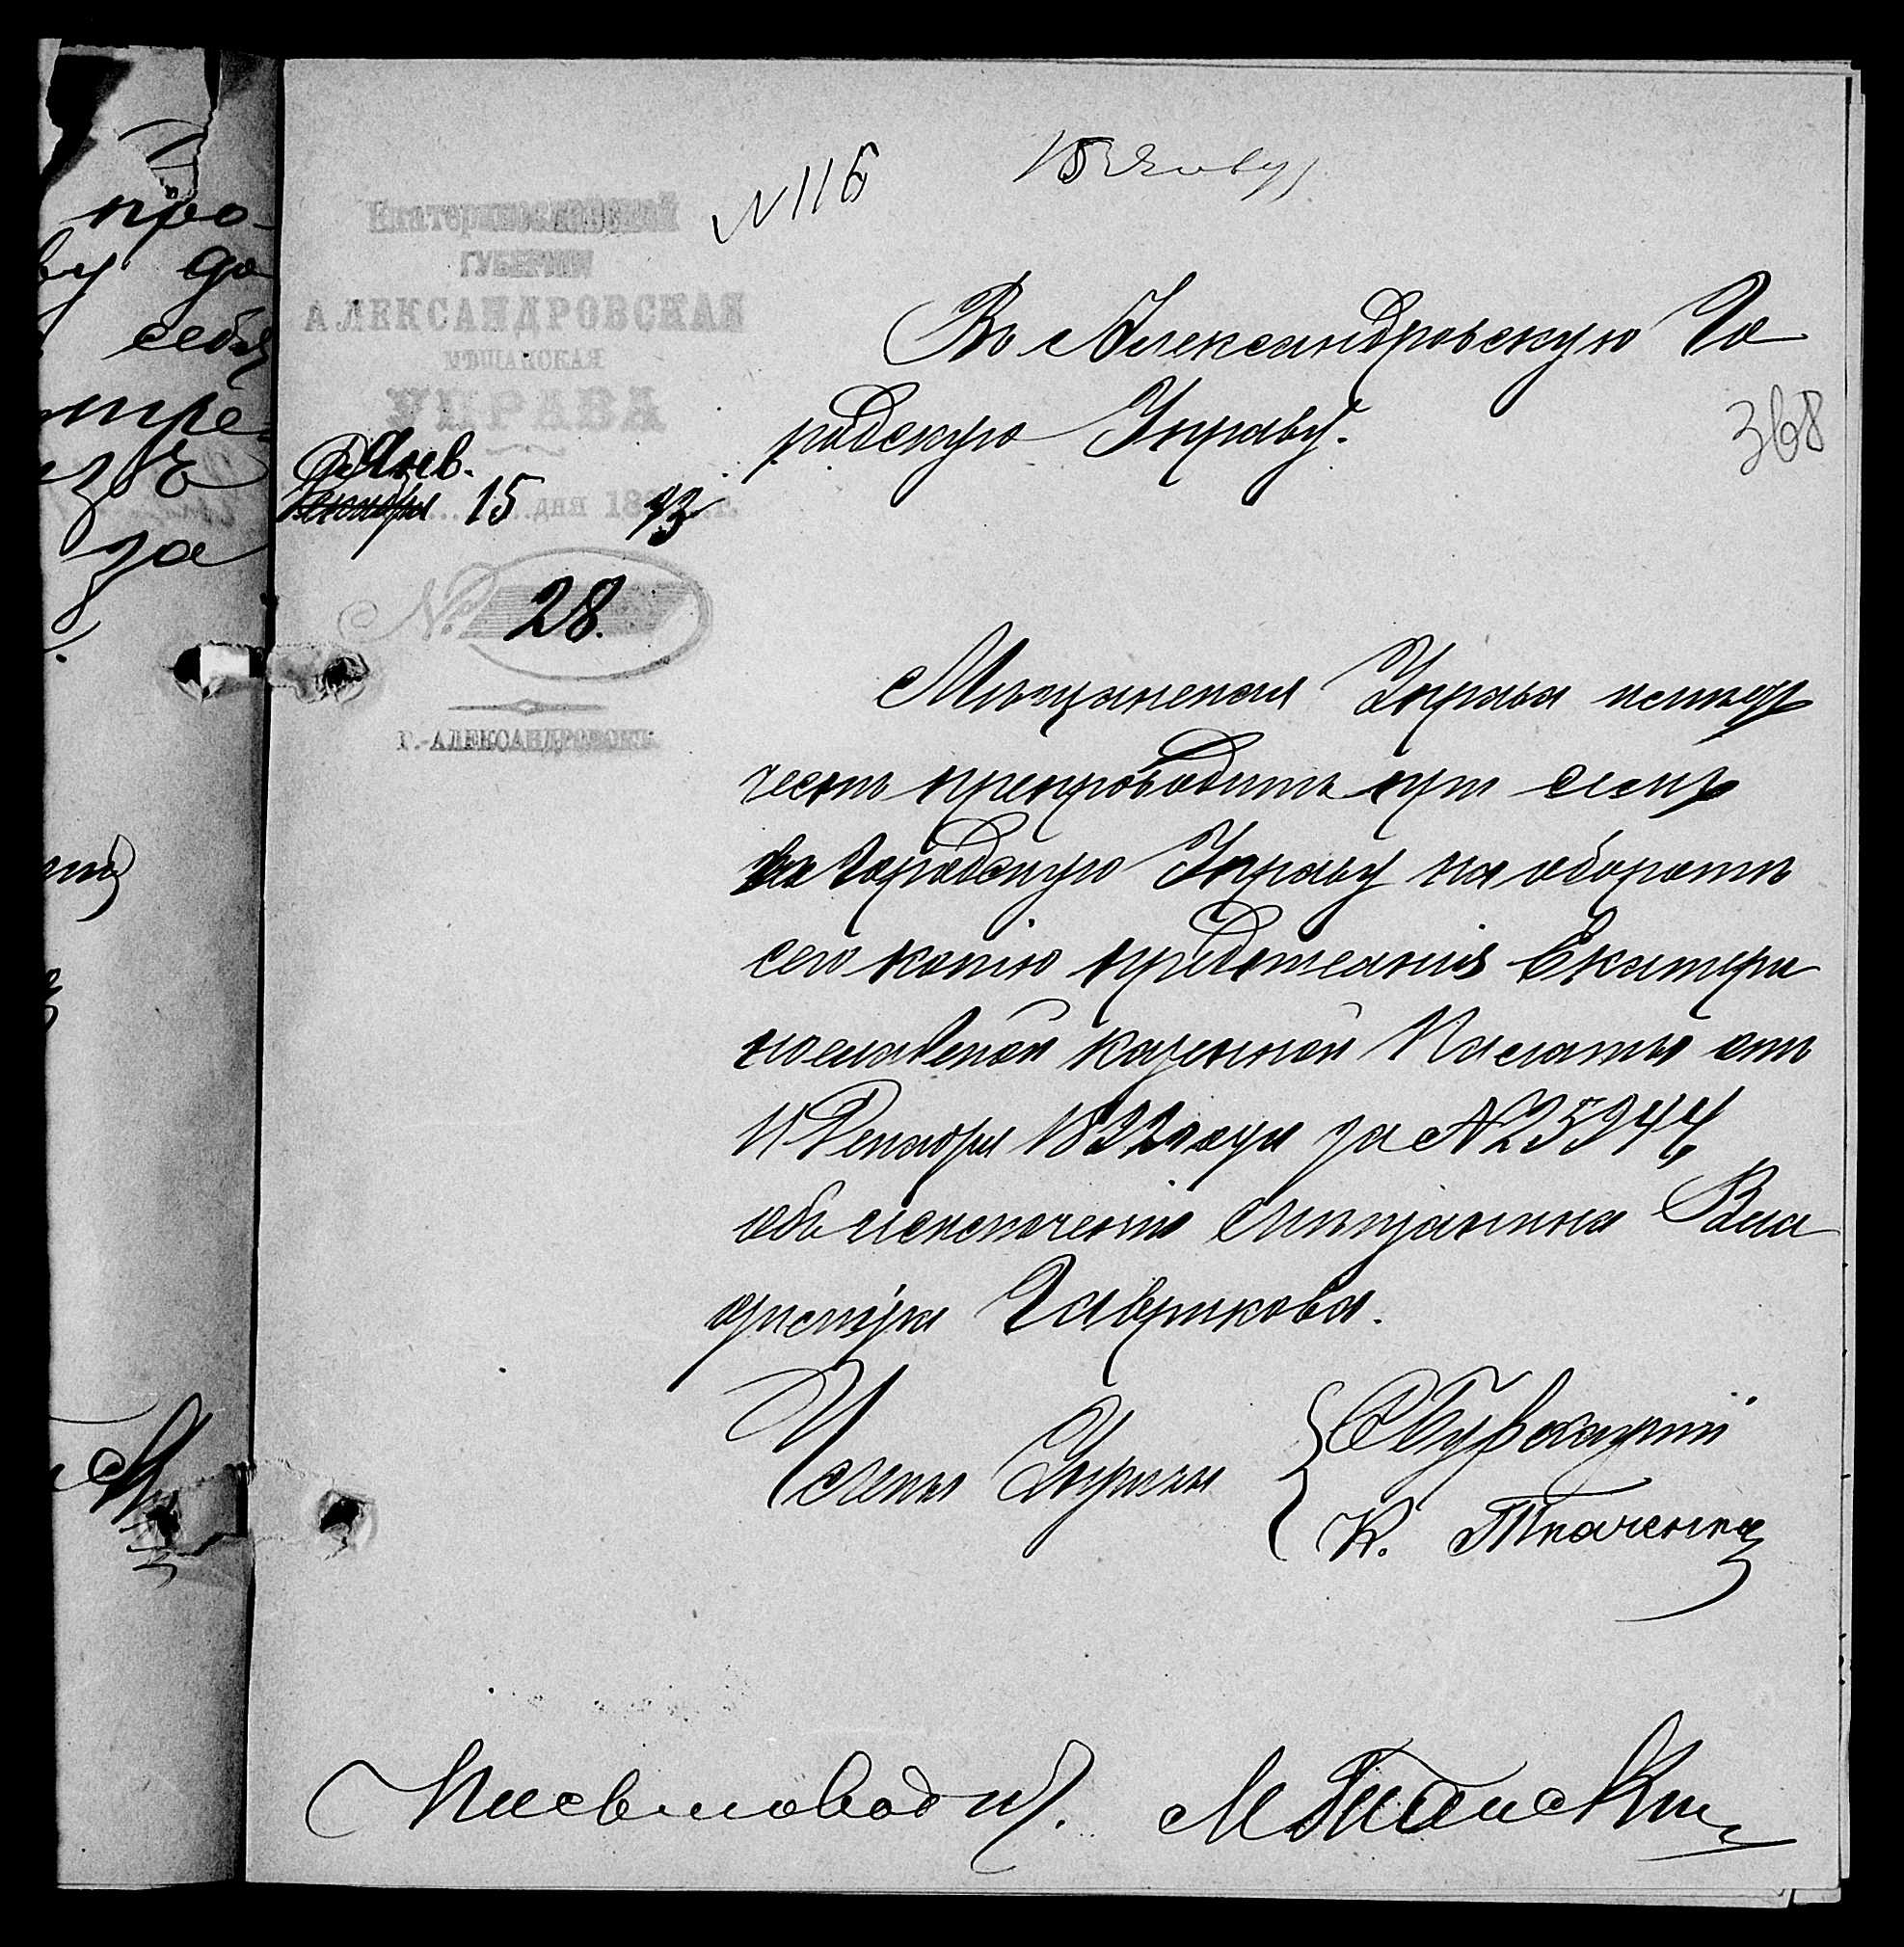 № 116
15 Январ
Екатеринославской
ГУБЕРНІИ
АЛЕКСАНДРОВСКАЯ
МѢЩАНСКАЯ
УПРАВА
Янв.
Декабря 15 дня 1893 г.
№ 28.
Г.-АЛЕКСАНДРОВСКЪ.
Въ Александровскую Го
родскую Управу.
368
Мѣщанская Управа имѣетъ
честь препроводить при семъ
въ Городскую Управу на оборотѣ
сего копію предписанія Екатери
нославской казенной Палаты отъ
11 Декабря 1892 года за № 25944
объ исключеніи мѣщанина
Гаврикова.
Члены Управы
К. Ткаченко
Письмовод
про-
ву до
себя
за